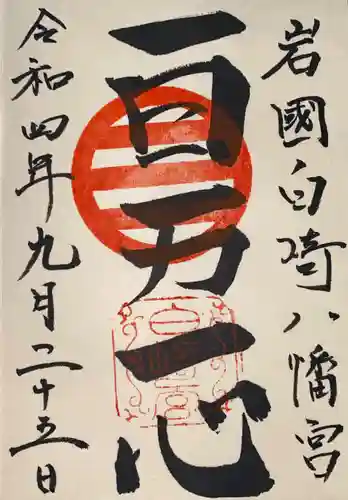 岩國白崎八幡宮
百万一心
令和四年九月二十五日